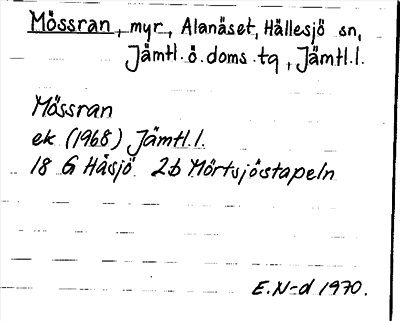 Mössran, myr, Alanäset, Hällesjö sn,
Jämtl. ö. doms. tg, Jämtl.l.
Mössran
ek (1968) Jämtl.l.
18 G Håsjö 2b Mörtsjöstapeln
E.N-d 1970.